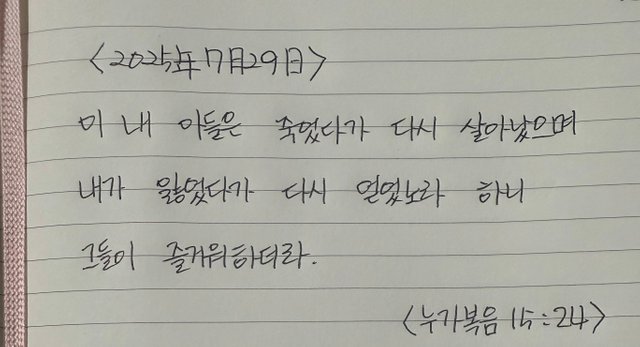 <2025年 7月 29日>
이 내 아들은 죽었다가 다시 살아났으며
내가 잃었다가 다시 얻었노라 하니
그들이 즐거워하더라.
<누가복음 15:24>